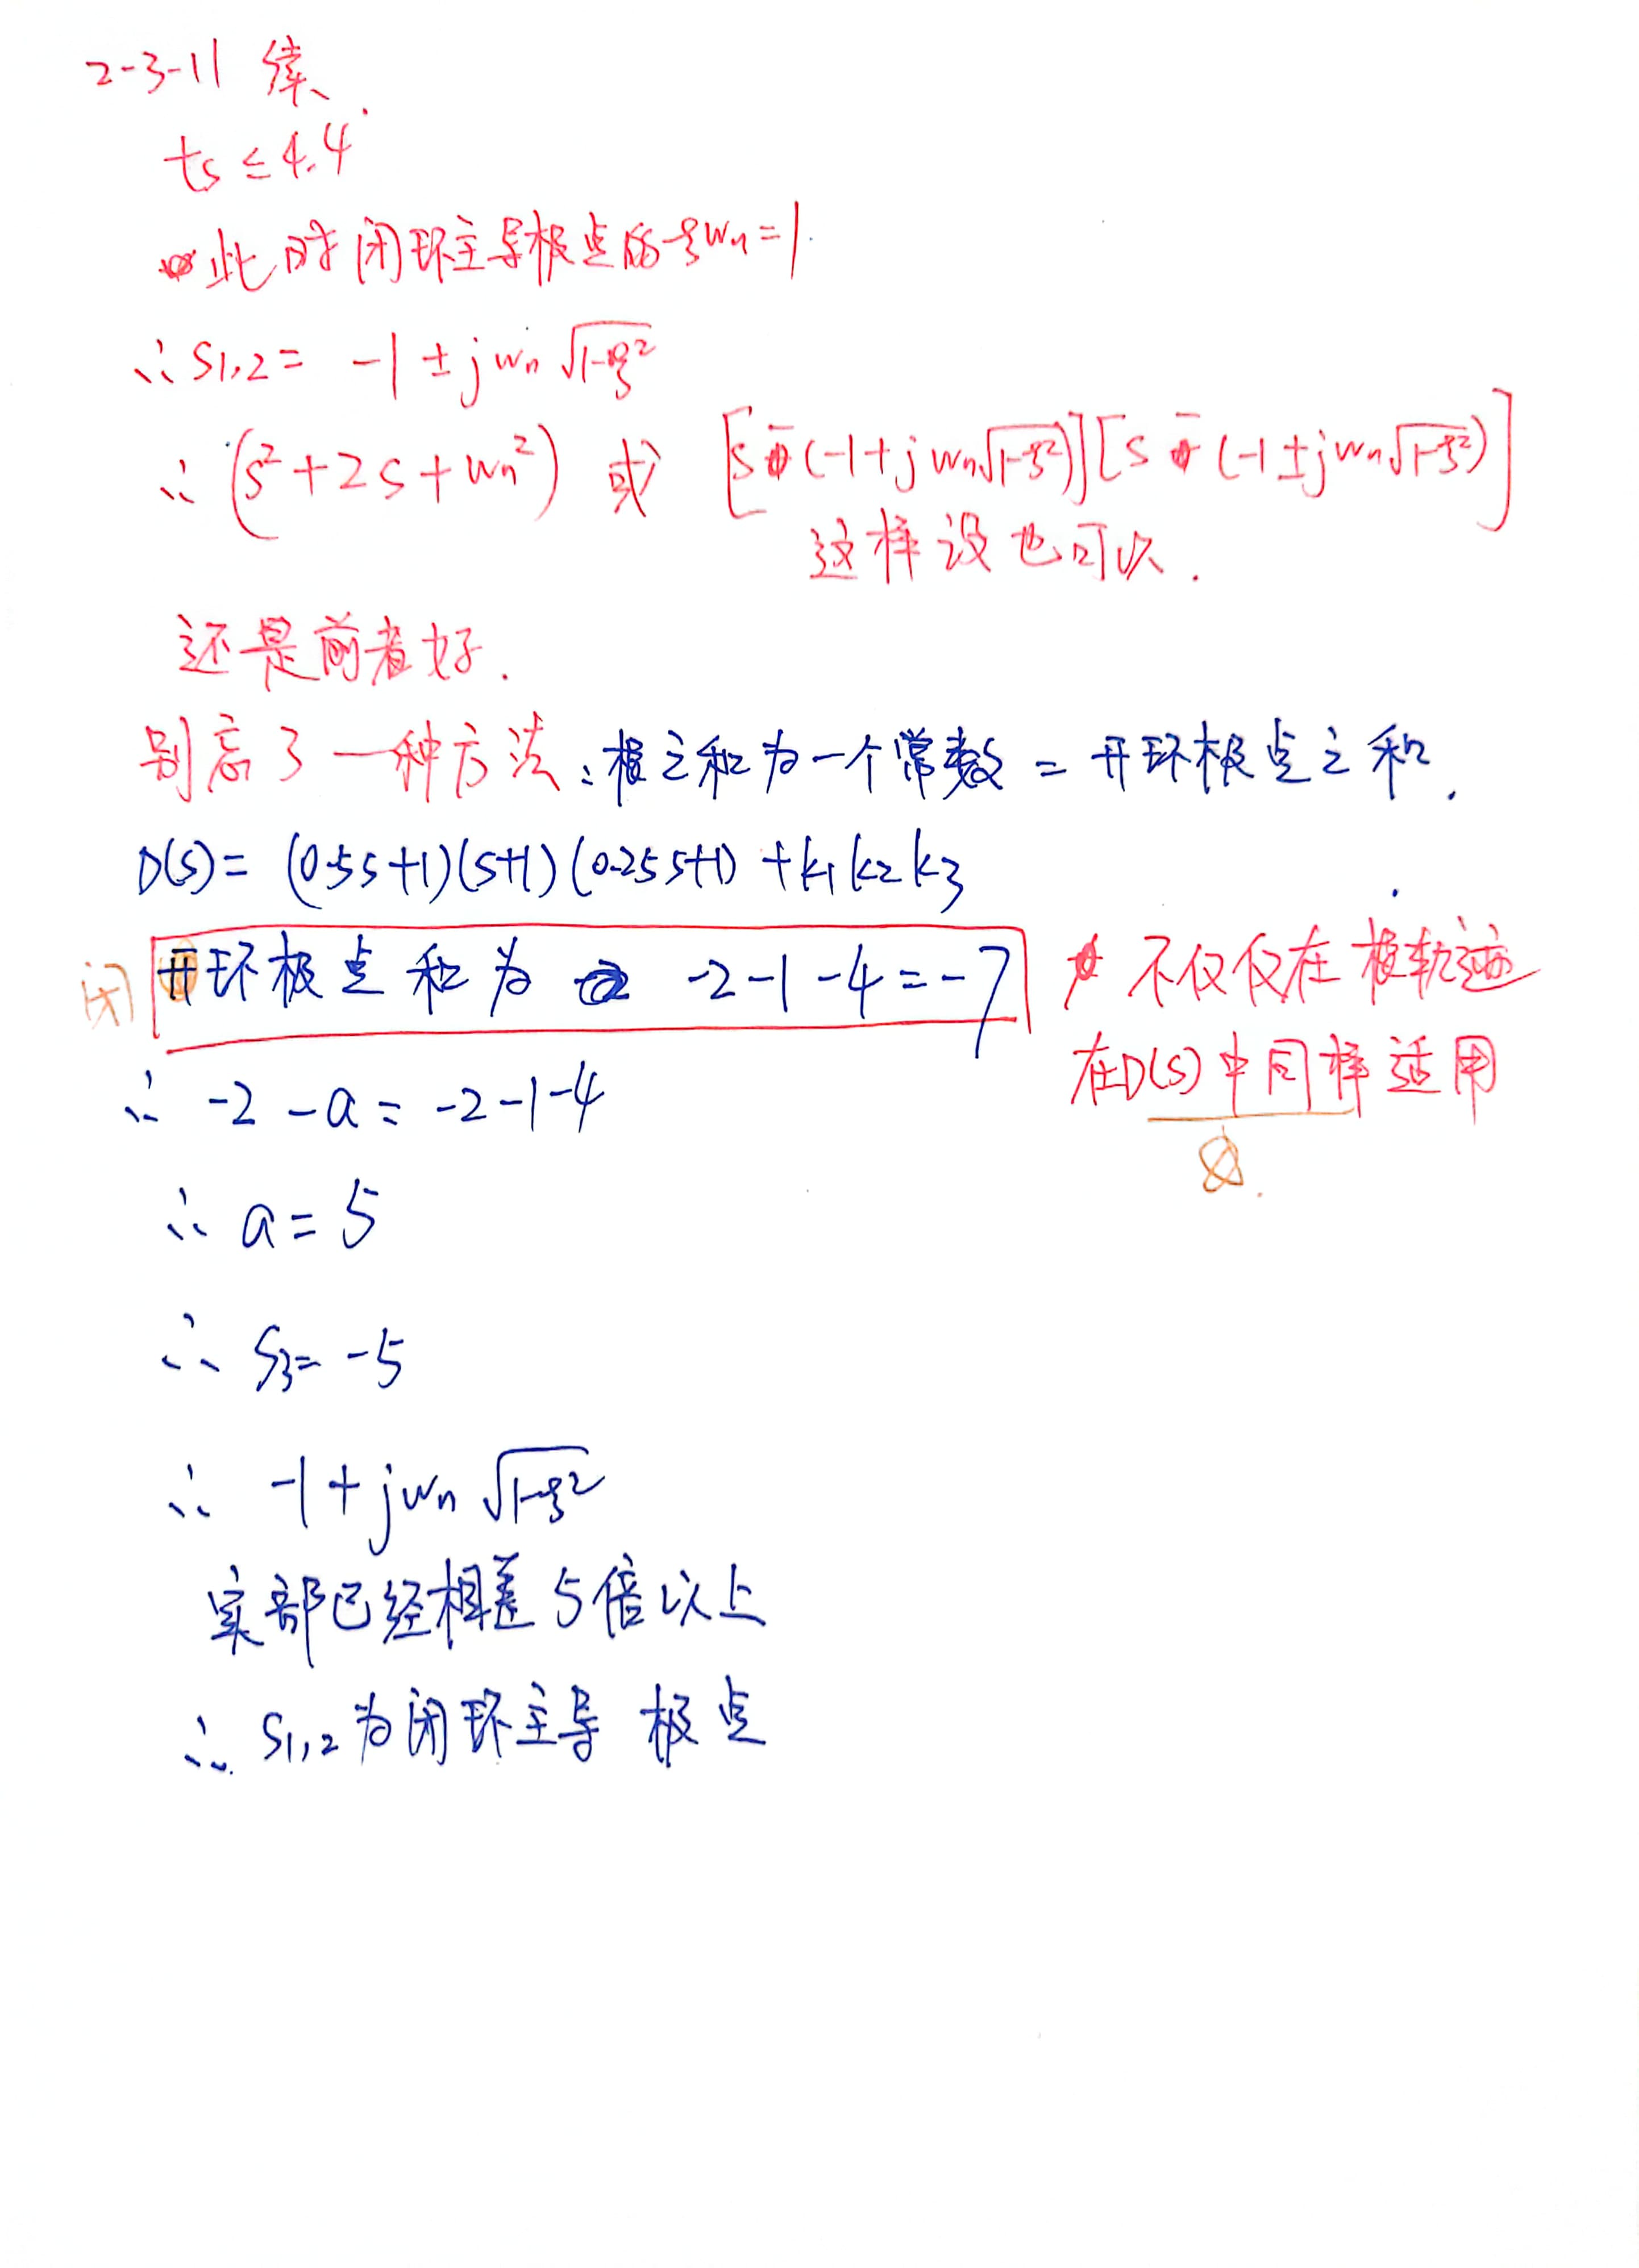 2-3-11 续
ts ≤ 4.4
此时闭环主导极点的ξwn=1.
∴ S1,2 = -1 ± jwn√(1-ξ²)
∴ (s²+2s+wn²) 或 [s-(-1+jwn√(1-ξ²)][s-(-1±jwn√(1-ξ²))]
这样设也可以.
还是前者好.
别忘了一种方法:根之和为一个常数 = 开环极点之和.
D(s) = (0.5s+1)(s+1)(0.25s+1) +k1k2k3
闭 开环极点和为 -2-1-4=-7
不仅仅在根轨迹
在D(s)中同样适用
∴ -2-a=-2-1-4
∴ a=5
∴ S3=-5
∴ -1+jwn√(1-ξ²)
实部已经相差5倍以上
∴ S1,2为闭环主导极点